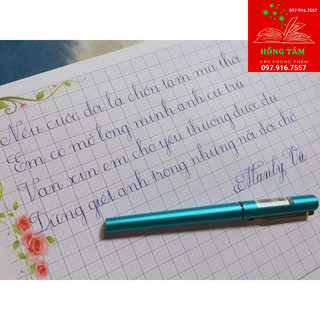 097.916.7557
HỒNG TÂM
VĂN PHÒNG PHẨM
097.916.7557
Nếu cuộc đời là chốn tạm mà thôi
Em có mở lòng mình anh cư trú
Vạn xin em cho yêu thương được đủ
Đừng giết anh trong những nỗi đợi chờ
Manly Vũ